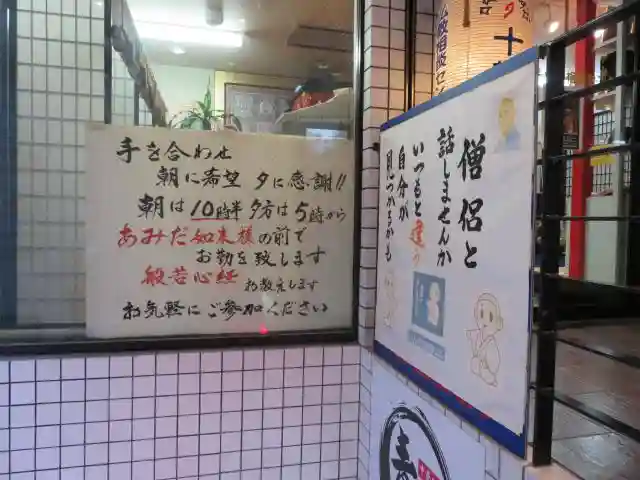 手を合わせ
朝に希望 夕に感謝!!
朝は10時半夕方は5時から
あみだ如来様の前で
お勤を致します
般若心経お教えします
お気軽にご参加ください
僧侶と
話しませんか
いつもと違う
自分が
見つかるかも